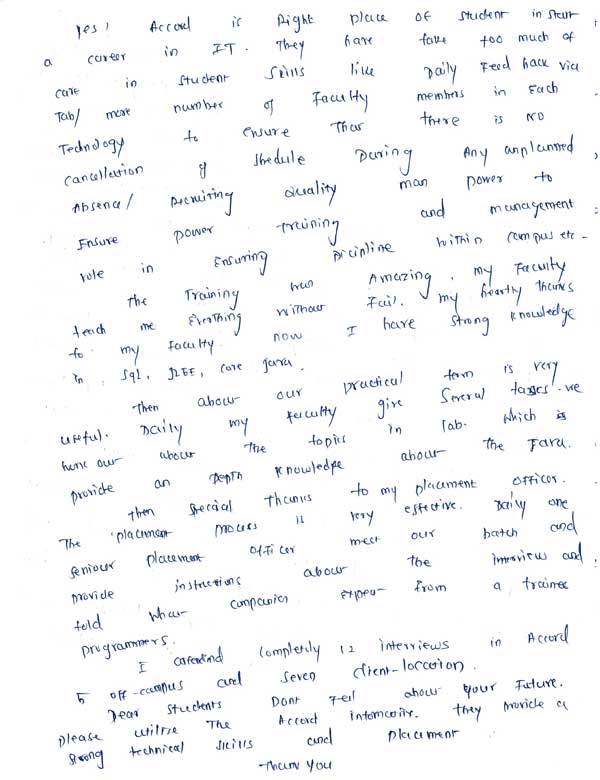 yes, Accord is Right place of student in start
a career in IT. They have take too much of
care in student skills like Daily Feed back via
Tab/ more number of Faculty members in Each
Technology to ensure That there is NO
cancellation of shedule During Any unplanned,
Absence/ Recruiting Quality man power to
Ensure power training and management
role in Ensuring Dicipline within campus etc-
The Training was Amazing. my Faculty
teach me Everthing without Fail. my heartly thanks
to my faculty. now I have strong knowledge
in Sql, J2EE, core java.
Then about our practical term is very
useful. Daily my faculty give Several tasks. we
our about the topics in lab. which is
provide an Depth knowledge about the Java.
then special Thanks to my placement officer.
The placement process is very effective. Daily one
seniour placement officer meet our batch and
provide instructions about the interview and
told what companies expeu- from a trainee
programmers.
I completely 12 interviews in Accord
5 off-campus and seven client-location.
Dear students Dont Feel about your Future.
please utilise The Accord They provide a
strong technical skills and placement
Thank you